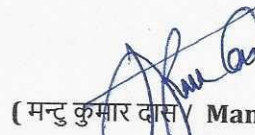 ( मन्टु कुमार दास / Man